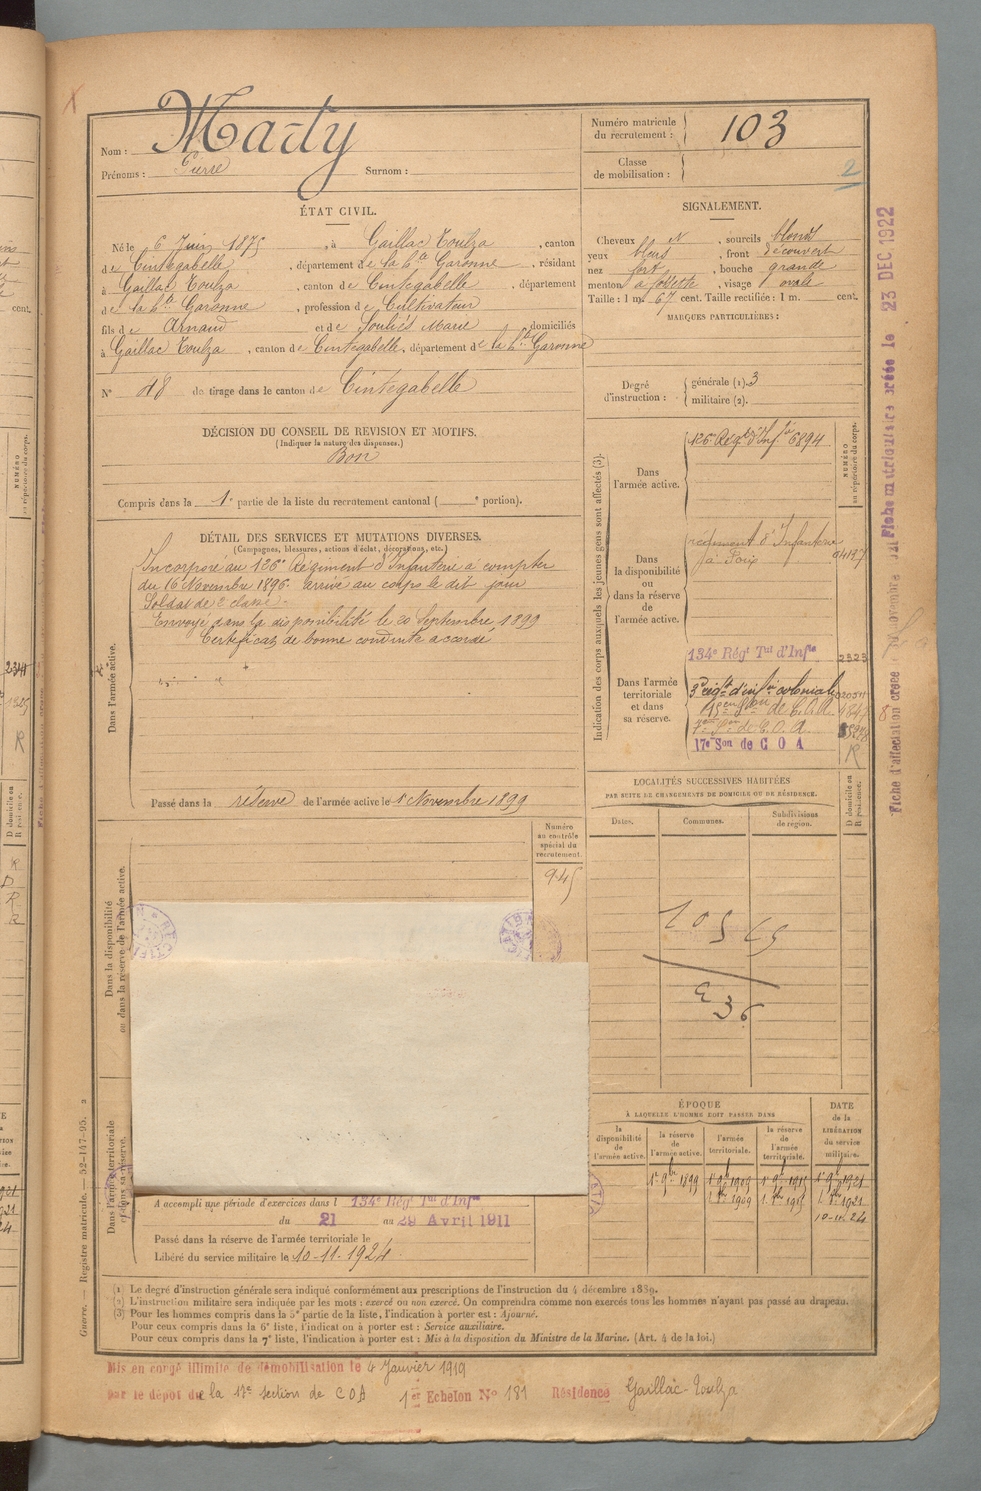 Nom : Marty
Prénoms : Pierre Surnom :
Numéro matricule du recrutement : 103
Classe de mobilisation :
2
ÉTAT CIVIL.
Né le 6 Juin 1875, à Gaillac Toulza, canton
de Cintegabelle, département de la hte Garonne, résidant
à Gaillac Toulza, canton de Cintegabelle, département
de la hte Garonne, profession de Cultivateur
fils de Arnaud et de Soulié Marie domiciliés
à Gaillac Toulza, canton de Cintegabelle, département de la hte Garonne
N° 48 de tirage dans le canton de Cintegabelle
SIGNALEMENT.
Cheveux , sourcils blonds
yeux bleus, front découvert
nez fort, bouche grande
menton à fossette, visage ovale
Taille : 1 m. 67 cent. Taille rectifiée : 1 m. cent.
MARQUES PARTICULIÈRES :
Degré d'instruction : générale (1). 3
militaire (2).
DÉCISION DU CONSEIL DE REVISION ET MOTIFS.
(Indiquer la nature des dispenses.)
Bon
Compris dans la 1e partie de la liste du recrutement cantonal ( e portion).
DÉTAIL DES SERVICES ET MUTATIONS DIVERSES.
(Campagnes, blessures, actions d'éclat, décorations, etc.)
Dans l'armée active.
Incorporé au 126e Régiment d'Infanterie à compter
du 16 Novembre 1896. arrivé au corps le dit jour
Soldat de 2e classe.
Envoyé dans la disponibilité le 20 Septembre 1899
Certificat de bonne conduite accordé
Passé dans la réserve de l'armée active le 1 Novembre 1899
Indication des corps auxquels les jeunes gens sont affectés (3).
NUMÉRO au répertoire du corps.
Dans l'armée active.
126e Régt d'Infie 6894
Dans la disponibilité ou dans la réserve de l'armée active.
régiment d'Infanterie
à Foix
Dans l'armée territoriale et dans sa réserve.
134e Régt Tal d'Infie 2323
3e rég d'infie coloniale
15e Son de C.O.A.
7e Son de C.O.A.
17e Son de C O A R
LOCALITÉS SUCCESSIVES HABITÉES
PAR SUITE DE CHANGEMENTS DE DOMICILE OU DE RÉSIDENCE.
Dates. Communes. Subdivisions de région. D domicile ou R résidence.
36
Numéro au contrôle spécial du recrutement.
945
Dans la disponibilité ou dans la réserve de l'armée active.
Dans l'armée territoriale et dans sa réserve.
ÉPOQUE
À LAQUELLE L'HOMME DOIT PASSER DANS
la disponibilité de l'armée active. la réserve de l'armée active. l'armée territoriale. la réserve de l'armée territoriale.
DATE de la LIBÉRATION du service militaire.
1er 9bre 1899 1er 8bre 1909 1er 8bre 1915 1er 8bre 1921
10-11-24
A accompli une période d'exercices dans l 134e Régt Tal d'Infie
du 21 au 29 Avril 1911
Passé dans la réserve de l'armée territoriale le
Libéré du service militaire le 10-11-1924.
(1) Le degré d'instruction générale sera indiqué conformément aux prescriptions de l'instruction du 4 décembre 1889.
(2) L'instruction militaire sera indiquée par les mots : exercé ou non exercé. On comprendra comme non exercés tous les hommes n'ayant pas passé au drapeau.
(3) Pour les hommes compris dans la 5e partie de la liste, l'indication à porter est : Ajourné.
Pour ceux compris dans la 6e liste, l'indication à porter est : Service auxiliaire.
Pour ceux compris dans la 7e liste, l'indication à porter est : Mis à la disposition du Ministre de la Marine. (Art. 4 de la loi.)
Mis en congé illimité de démobilisation le 4 Janvier 1919
par le dépôt de la 17e section de COA 1er Echelon N° 181 Résidence Gaillac-Toulza
Guerre. — Registre matricule. — 52-147-95.
Fiche matriculaire créée le 23 DEC 1922